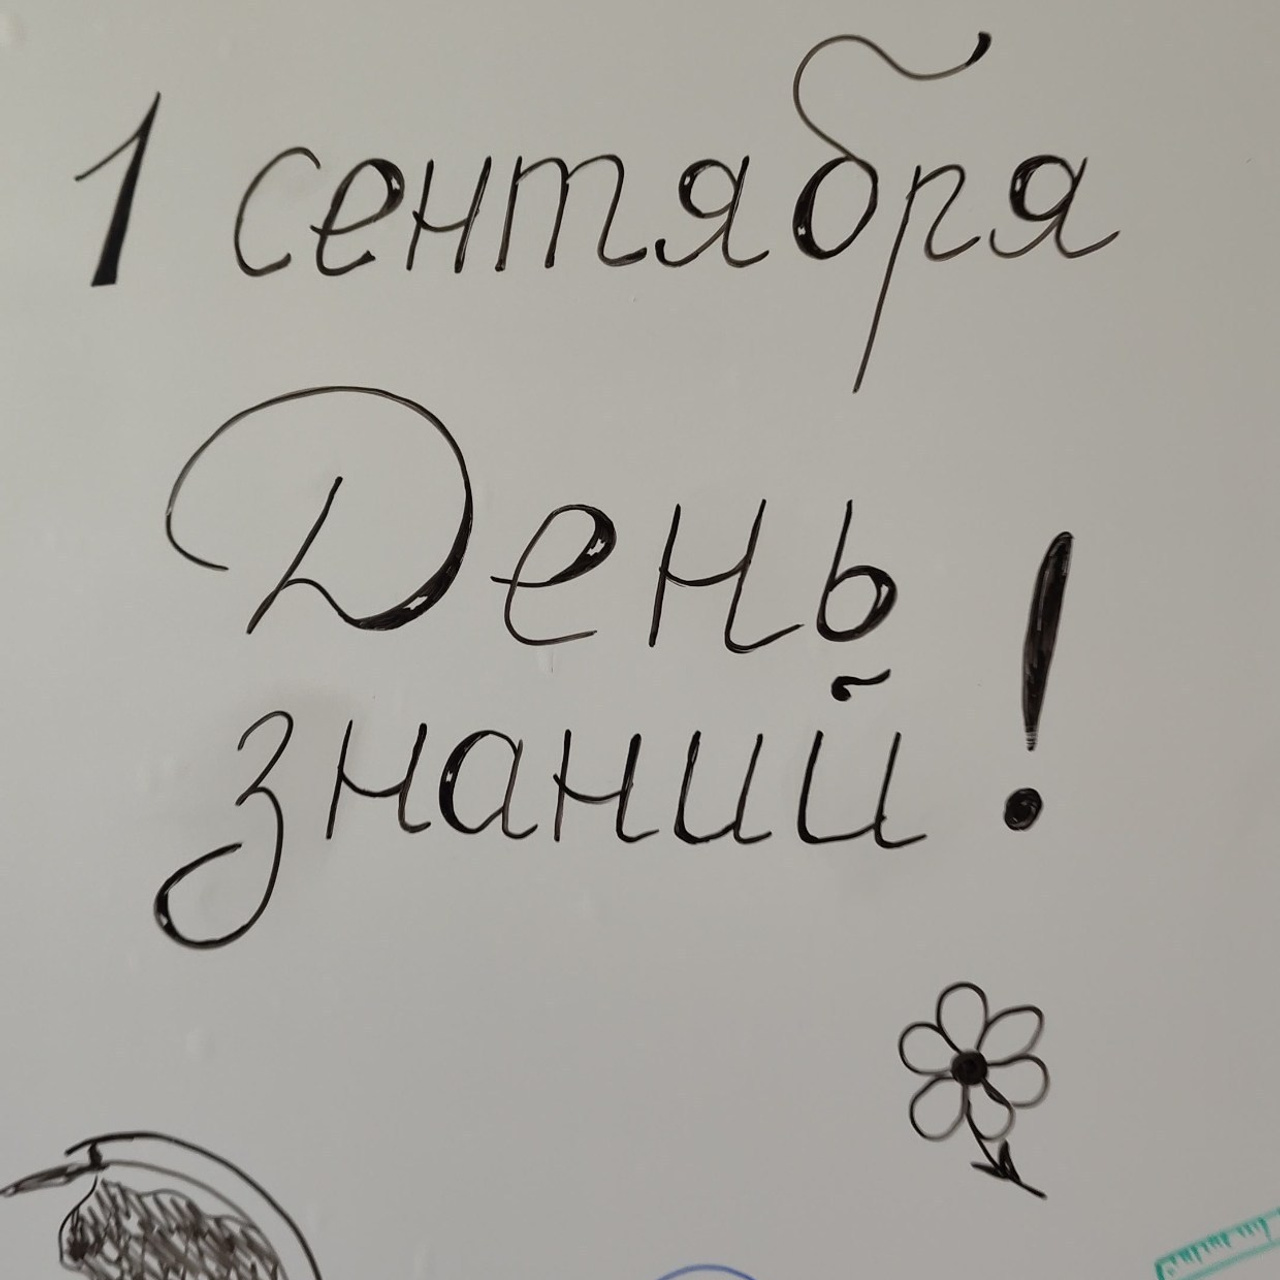 1 сентября
День
знаний!